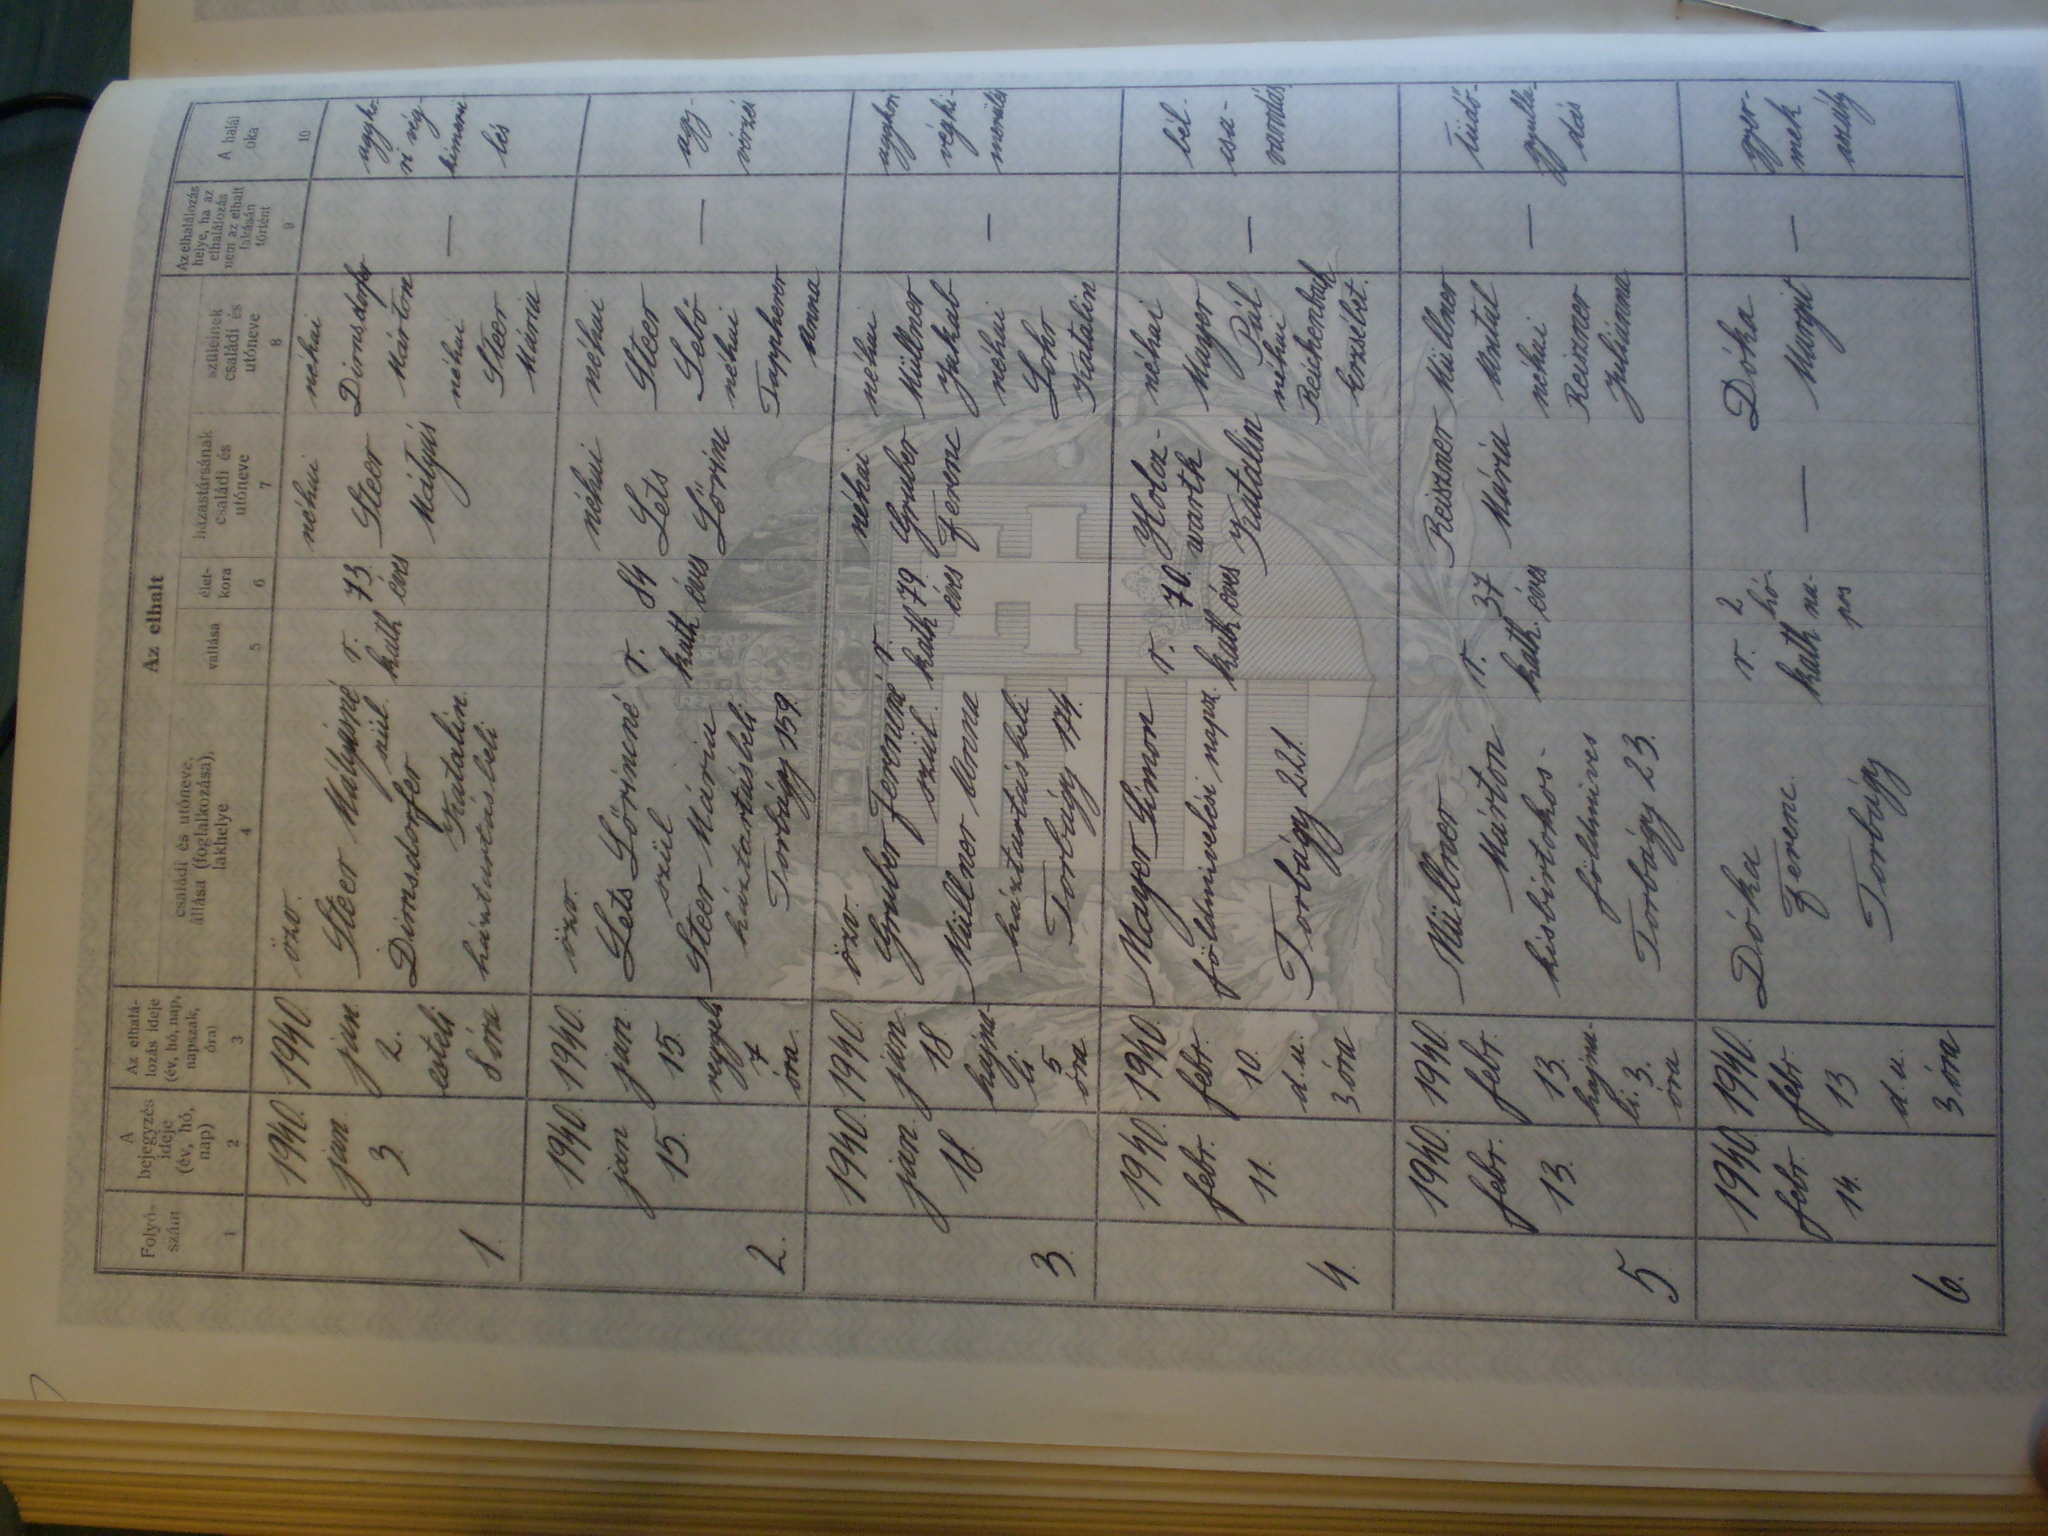 Az elhalt
Folyó-
szám
A
bejegyzés
ideje
(év, hó,
nap)
Az elhalá-
lozás ideje
(év, hó, nap,
napszak,
óra)
családi és utóneve,
állása (foglalkozása),
lakhelye
vallása
élet-
kora
házastársának
családi és
utóneve
szüleinek
családi és
utóneve
Az elhalálozás
helye, ha az
elhalálozás
nem az elhalt
lakásán
történt
A halál
oka
1
2
3
4
5
6
7
8
9
10
1.
1940.
jan.
3.
1940.
jan.
2.
esteli
8 óra
özv.
Steer Mátyásné
szül.
Dirnsdorfer
Katalin.
háztartásbeli
r.
kath
73.
éves
néhai
Steer
Mátyás
néhai
Dirnsdorfer
Márton
néhai
Steer
Mária
—
aggko-
ri vég-
kimerü-
lés
2.
1940.
jan
15.
1940.
jan
15.
reggeli
7
óra.
özv.
Lets Lőrincné
szül
Steer Mária
háztartásbeli
Torbágy 159.
r.
kath
84
éves
néhai
Lets
Lőrinc
néhai
Steer
Sebő
néhai
Tappherer
Anna
—
agy-
vérzés
3.
1940.
jan.
18.
1940.
jan.
18.
hajna-
li
5
óra
özv.
Gruber Ferencné
szül.
Müllner Anna
háztartásbeli
Torbágy 174.
r.
kath
79.
éves
néhai
Gruber
Ferenc
néhai
Müllner
Jakab
néhai
Sohr
Katalin
—
aggkori
végki-
merülés
4.
1940.
febr.
11.
1940.
febr.
10.
d.u.
3 óra
Mayer Simon
földmivelési napsz.
Torbágy 221.
r.
kath
70.
éves
Holcz-
warth
Katalin
néhai
Mayer
Pál
néhai
Reichenbach
Erzsébet.
—
bél-
csa-
varodás
5
1940.
febr.
13.
1940.
febr.
13.
hajna-
li. 3.
óra
Müllner
Márton
kisbirtokos-
földmives
Torbágy 23.
r.
kath.
37
éves
Reiszner
Mária
Müllner
Antal
néhai
Reiszner
Juliánna
—
tüdő-
gyulla-
dás
6.
1940.
febr.
14.
1940.
febr.
13
d.u.
3 óra
Dóka
Ferenc.
Torbágy
r.
kath
2
hó-
na-
pos
—
Dóka
Margit
—
gyer-
mek
aszály